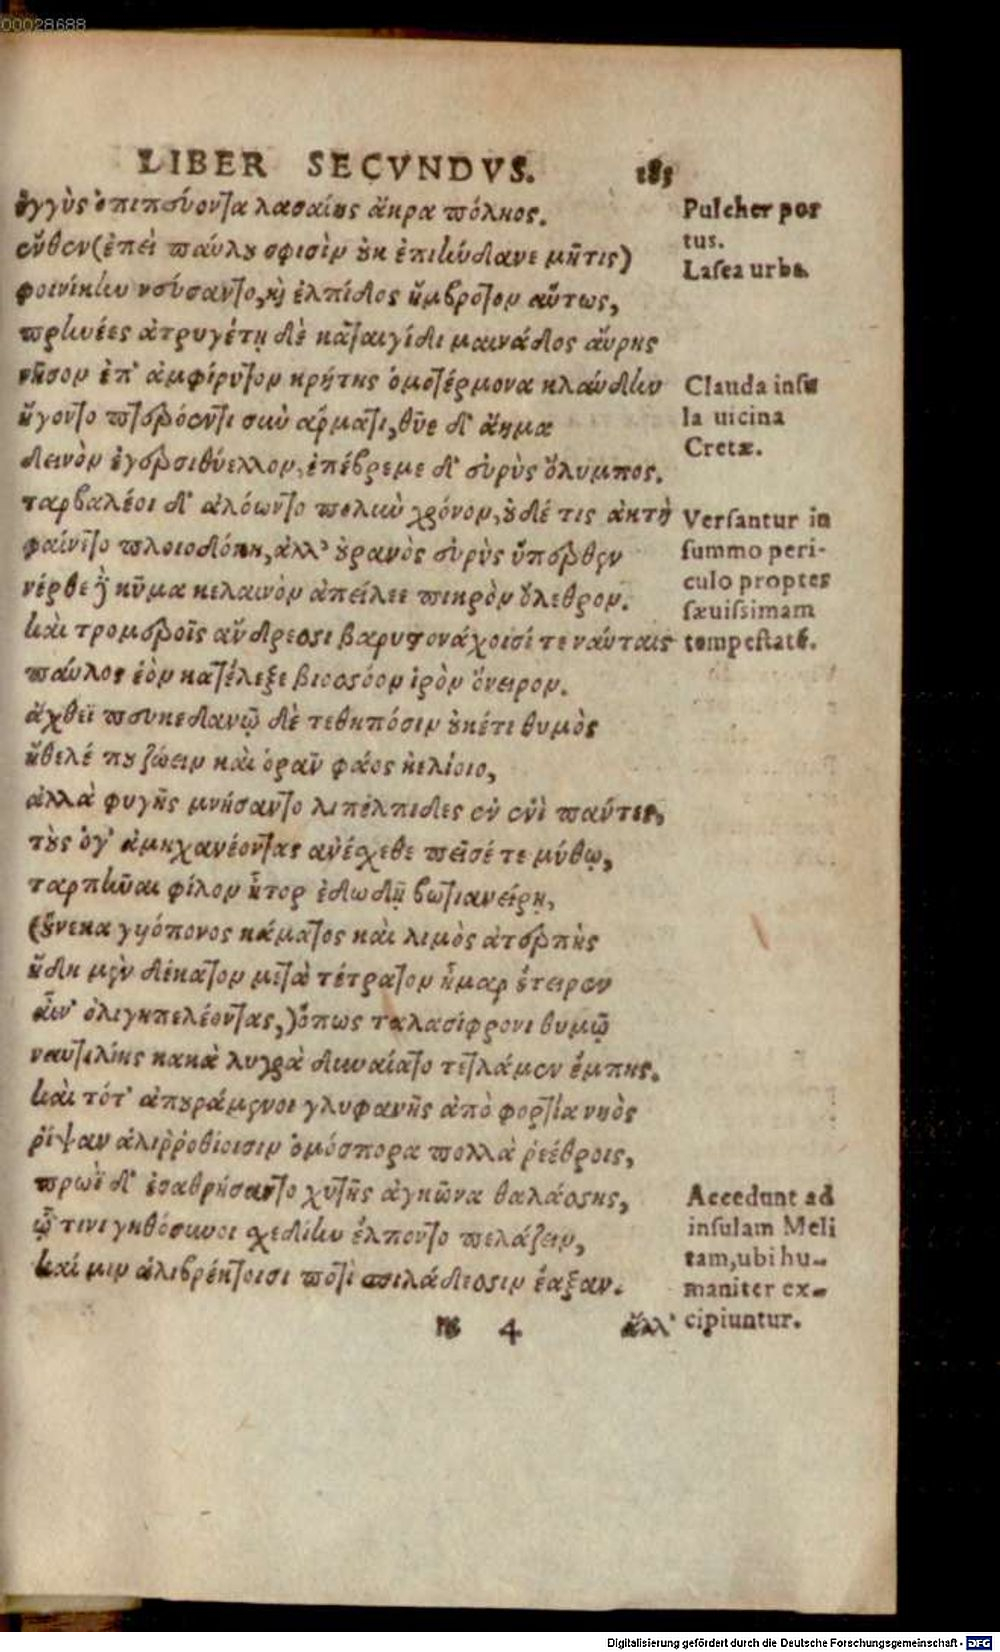 00028688
LIBER SECVNDVS. 185
ἐγγὺς ἐπιπνεύοντα λασαίης ἄκρα πόληος.
ἔνθεν (ἐπεὶ παύλου σφισὶν οὐκ ἐπιήνδανε μῆτις)
φοινίκην νεύσαντο, καὶ ἐλπίδος ἤμβροτον αὔτως,
πρηνέες ἀτρυγέτῃ δὲ καταιγίδι μαινάδος αὔρης
νῆσον ἐπ' ἀμφίρυτον κρήτης ὁμοτέρμονα κλαύδην
ἤγοντο σὺν ἅρματι, θῦε δ' ἄημα
δεινὸν ἐγερσιθύελλον, ἐπέβρεμε δ' εὐρὺς ὄλυμπος.
ταρβαλέοι δ' ἀλόωντο πολὺν χρόνον, οὐδέ τις ἀκτὴ
φαίνετο πλοιοδόκη, ἀλλ' οὐρανὸς εὐρὺς ὕπερθεν
νέρθε δὲ κῦμα κελαινὸν ἀπείλεε πικρὸν ὄλεθρον.
καὶ τρομεροῖς ἄνδρεσσι βαρυστονάχοισί τε ναύταις
παύλος ἑὸν κατέλεξε βιοσσόον ἱρὸν ὄνειρον.
ἄχθεϊ πευκεδανῷ δὲ τεθηπόσιν οὐκέτι θυμὸς
ἤθελέ που ζώειν καὶ ὁρᾶν φάος ἠελίοιο,
ἀλλὰ φυγῆς μνήσαντο λιπέλπιδες ἐν ἑνὶ πάντες,
τοὺς ὅγ' ἀμηχανέοντας ἀνέσχεθε πεῖσέ τε μύθῳ,
ταρπῆναι φίλον ἦτορ ἐδωδῇ βωτιανείρῃ,
(οὕνεκα γυιόπονος κάματος καὶ λιμὸς ἀτερπὴς
ἤδη μὲν δέκατον μετὰ τέτρατον ἦμαρ ἔτειρεν
αἰὲν ὀλιγηπελέοντας,) ὅπως ταλασίφρονι θυμῷ
ναυτιλίης κακὰ λυγρὰ δυναίατο τετλάμεν ἔμπης.
καὶ τότ' ἀπουράμενοι γλυφανῆς ἀπὸ φορτία νηὸς
ῥίψαν ἁλιῤῥοθίοισιν ὁμόσπορα πολλὰ ῥεέθροις,
πρωῒ δ' ἐσαθρήσαντο χυτῆς ἀγκῶνα θαλάσσης,
ᾧ τινι γηθόσυνοι σχεδίην ἔλποντο πελάζειν,
καί μιν ἁλιβρέκτοισι ποτὶ σπιλάδεσσιν ἔαξαν.
m 4 ἀλλ'
Pulcher por
tus.
Lasea urbs.
Clauda insu
la uicina
Cretæ.
Versantur in
summo peri-
culo propter
sæuissimam
tempestatē.
Accedunt ad
insulam Meli
tam, ubi hu-
maniter ex-
cipiuntur.
Digitalisierung gefördert durch die Deutsche Forschungsgemeinschaft - DFG